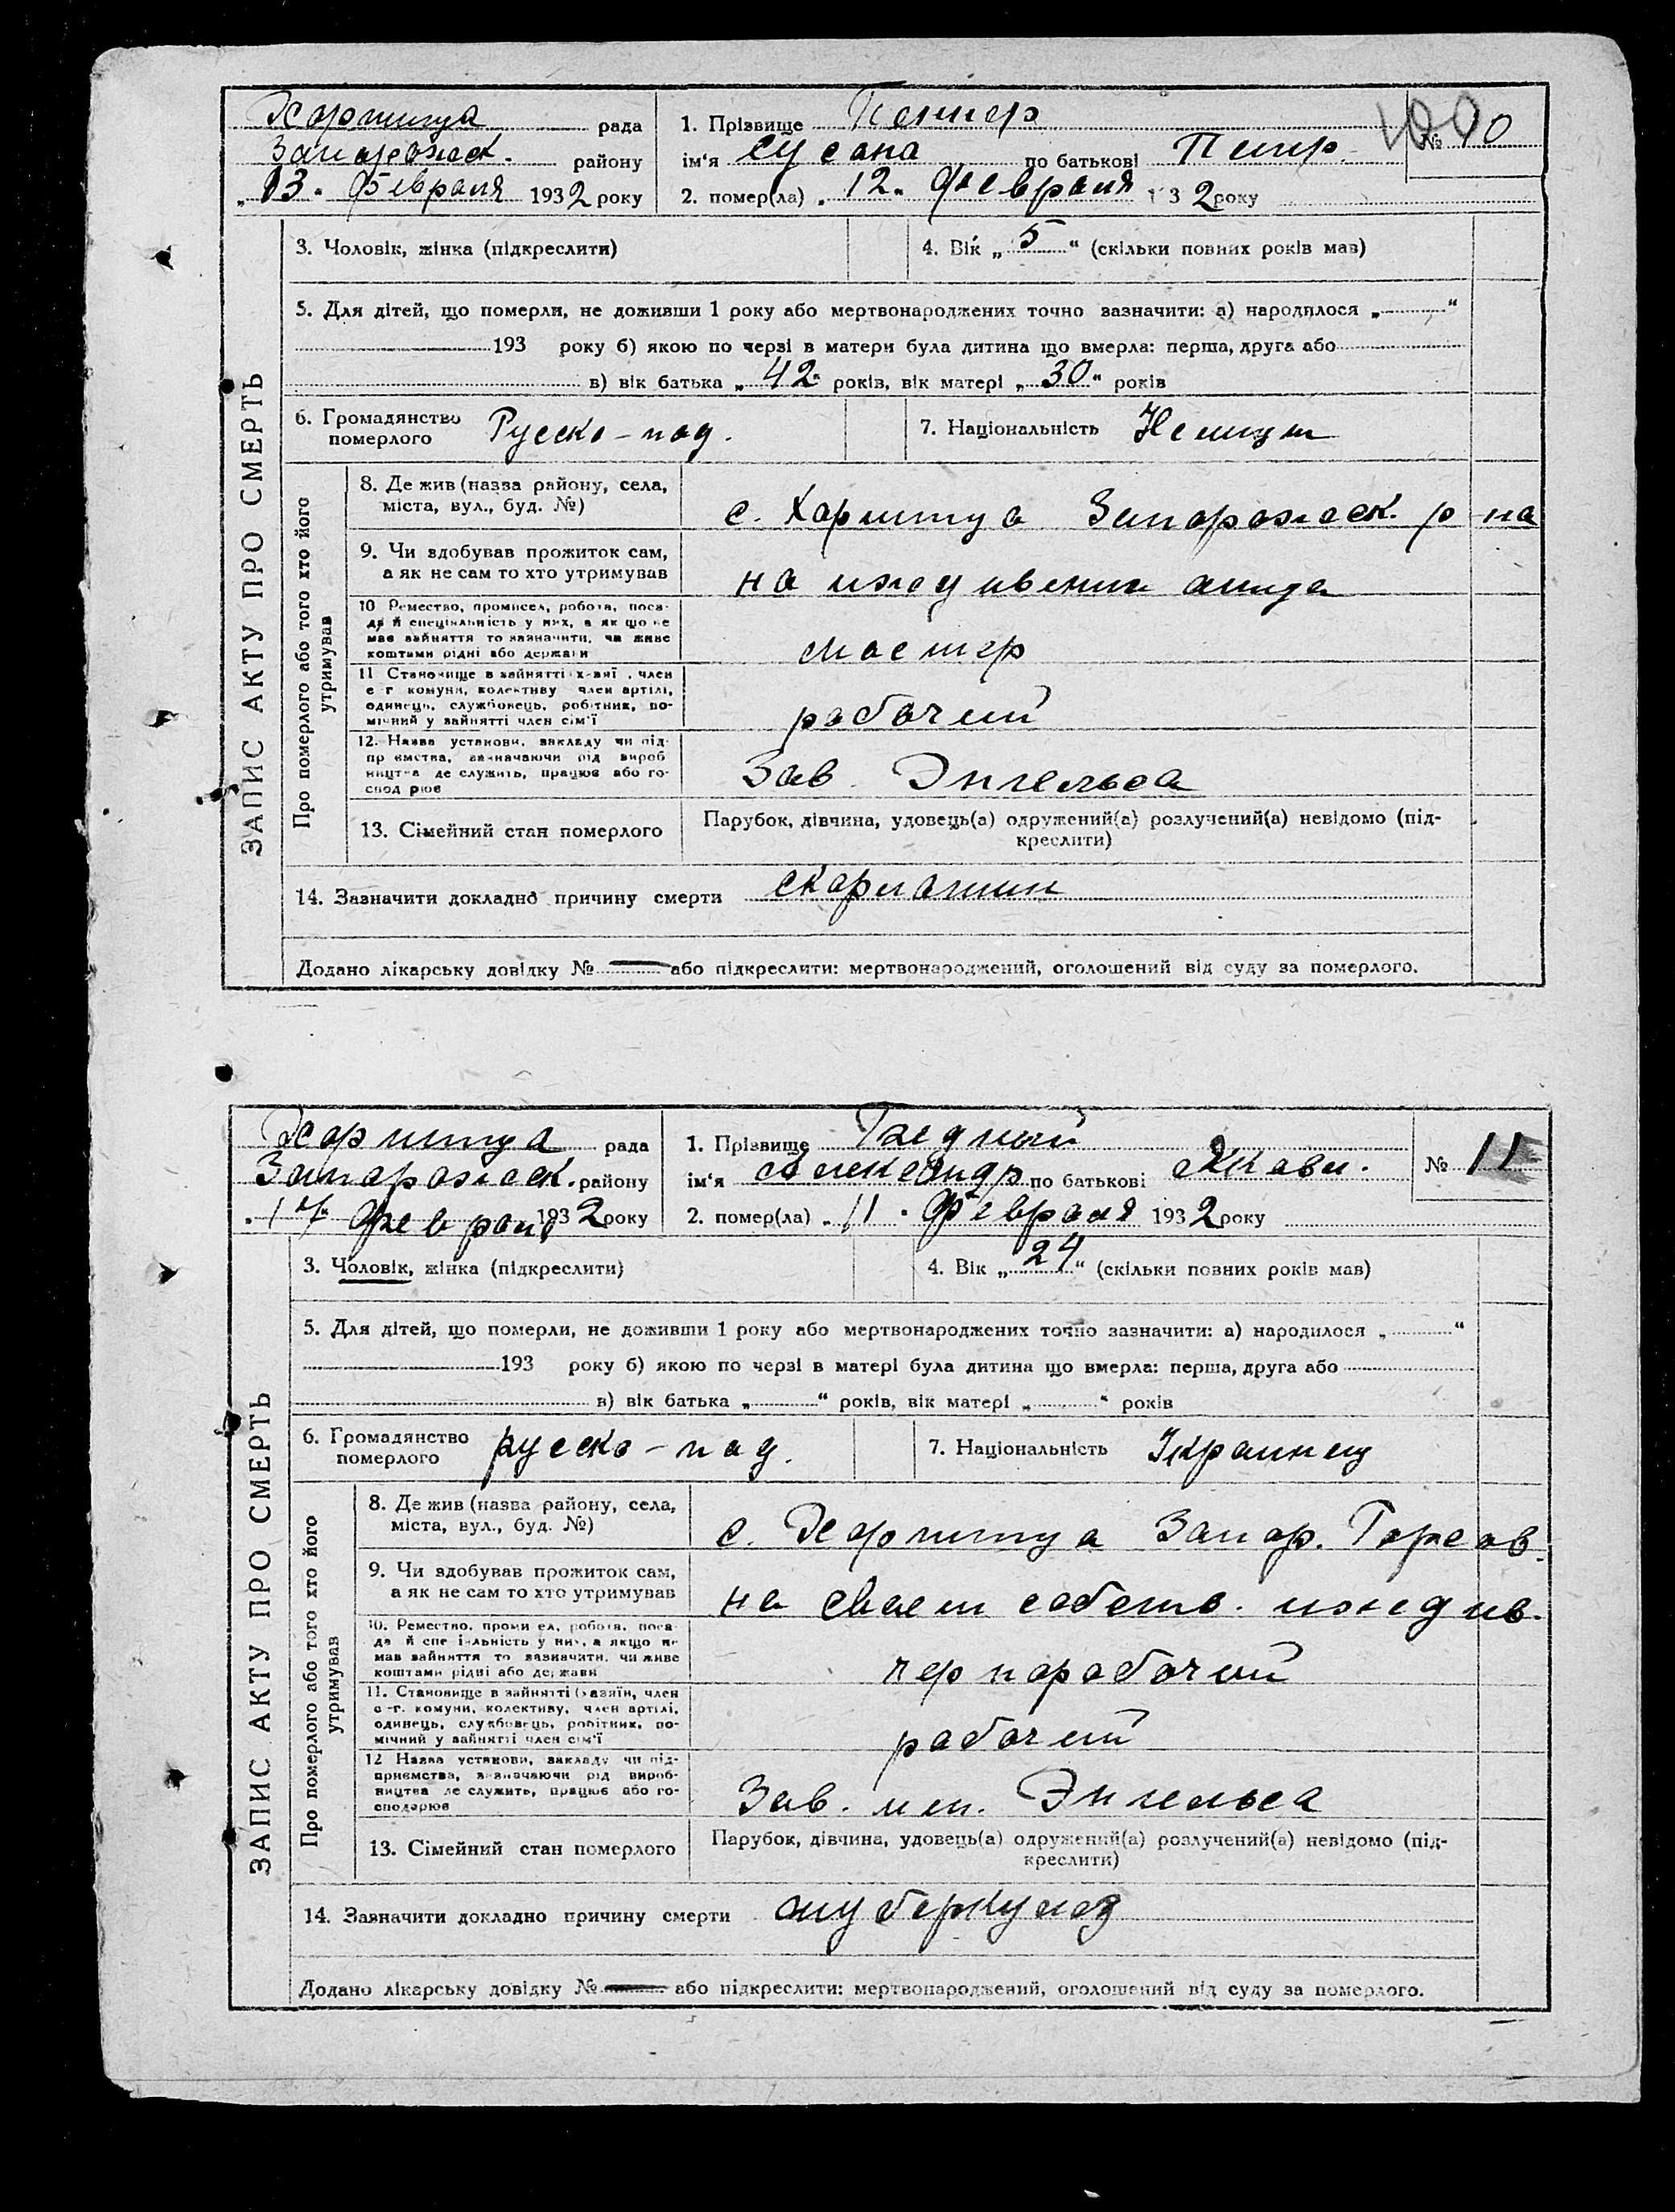 Хортица рада
Запорожск. району
„ 13 " Февраля 1932 року
1. Прізвище Пеннер
ім'я Сусана по батькові Петр.
№ 10
2. помер(ла) „ 12 " Февраля 1 3 2 року
3. Чоловік, жінка (підкреслити)
4. Вік „ 5 " (скільки повних років мав)
5. Для дітей, що померли, не доживши 1 року або мертвонароджених точно зазначити: а) народилося „ "
193 року б) якою по черзі в матери була дитина що вмерла: перша, друга або
в) вік батька „ 42 " років, вік матері „ 30 " років
6. Громадянство
померлого
Русско-под.
7. Національність
ЗАПИС АКТУ ПРО СМЕРТЬ
Про померлого або того хто його
утримував
8. Де жив (назва району, села,
міста, вул., буд. №)
с. Хортица Запорожск. р на
9. Чи здобував прожиток сам,
а як не сам то хто утримував
на иждивении отца
10 Ремество, промисел, робота, поса-
да й спеціяльність у них, а як що не
має зайняття то зазначити, чи живе
коштами рідні або держави
мастер
11 Становище в зайнятті х-зяї , член
с г комуни, колективу член артілі,
одинець, службовець, робітник, по-
мічний у зайнятті член сім'ї
рабочий
12. Назва установи, закладу чи під-
пр ємства, зазначаючи рід вироб
ництва де служить, працює або го-
спод рює
Зав. Энгельса
13. Сімейний стан померлого
Парубок, дівчина, удовець(а) одружений(а) розлучений(а) невідомо (під-
креслити)
14. Зазначити докладно причину смерти скарлатин
Додано лікарську довідку № або підкреслити: мертвонароджений, оголошений від суду за померлого.
Хортица рада
Запорожск. району
„ 17 " Феврал 1932 року
1. Прізвище
ім'я Александр по батькові
№ 11
2. помер(ла) „ 11 " Февраля 1932 року
3. Чоловік, жінка (підкреслити)
4. Вік „ 24 " (скільки повних років мав)
5. Для дітей, що померли, не доживши 1 року або мертвонароджених точно зазначити: а) народилося „ "
193 року б) якою по черзі в матері була дитина що вмерла: перша, друга або
в) вік батька „ " років, вік матері „ " років
6. Громадянство
померлого
русско-под.
7. Національність Украинец
ЗАПИС АКТУ ПРО СМЕРТЬ
Про померлого або того хто його
утримував
8. Де жив (назва району, села,
міста, вул., буд. №)
с. Хортица Запор. Горсов.
9. Чи здобував прожиток сам,
а як не сам то хто утримував
на своем собств. иждив.
10. Ремество, проми ел, робота, поса-
да й спе іяльність у них, а якщо не
мав зайняття то зазначити, чи живе
коштами рідні або держави
чернорабочий
11. Становище в зайнятті (хазяїн, член
с-г. комуни, колективу, член артілі,
одинець, службовець, робітник, по-
мічний у зайнятті член сім'ї
рабочий
12 Назва установи, закладу чи під-
приємства, зазначаючи рід вироб-
ництва де служить, працює або го-
сподарює
Зав. им. Энгельса
13. Сімейний стан померлого
Парубок, дівчина, удовець(а) одружений(а) розлучений(а) невідомо (під-
креслити)
14. Зазначити докладно причину смерти туберкулоз
Додано лікарську довідку № або підкреслити: мертвонароджений, оголошений від суду за померлого.